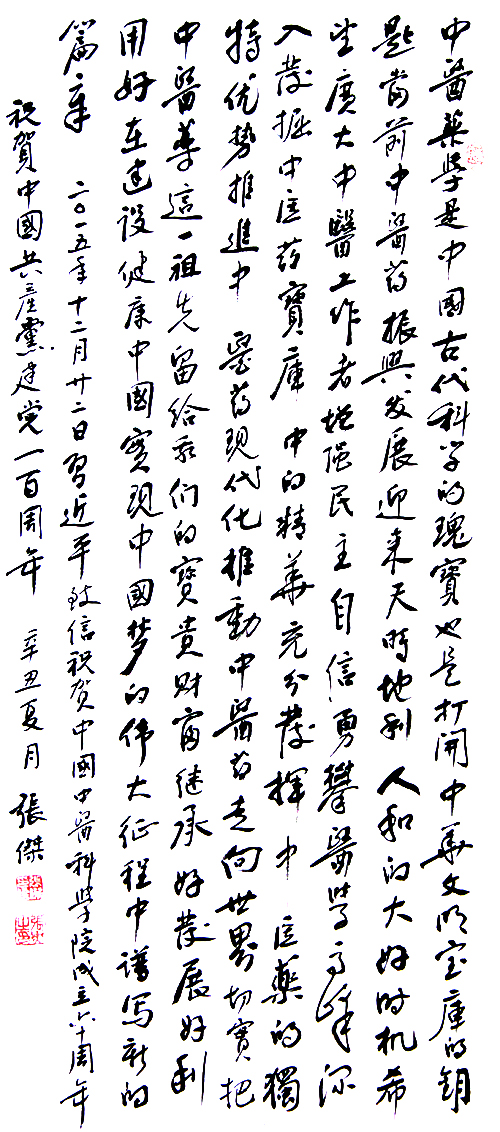 中醫藥學是中國古代科学的瑰寶也是打開中華文明宝庫的鑰
匙當前中醫药振興发展迎来天時地利人和的大好时机希
望廣大中醫工作者增强民主自信勇攀醫學高峰深
入發掘中医药寶庫中的精華充分發揮中医藥的獨
特优势推進中醫药现代化推動中醫药走向世界切實把
中醫药這一祖先留给我们的寶貴财富继承好發展好利
用好在建设健康中國實现中國梦的伟大征程中譜写新的
篇章 二〇一五年十二月廿二日習近平致信祝賀中國中醫科學院成立六十周年
祝賀中國共產黨建党一百周年 辛丑夏月 張傑